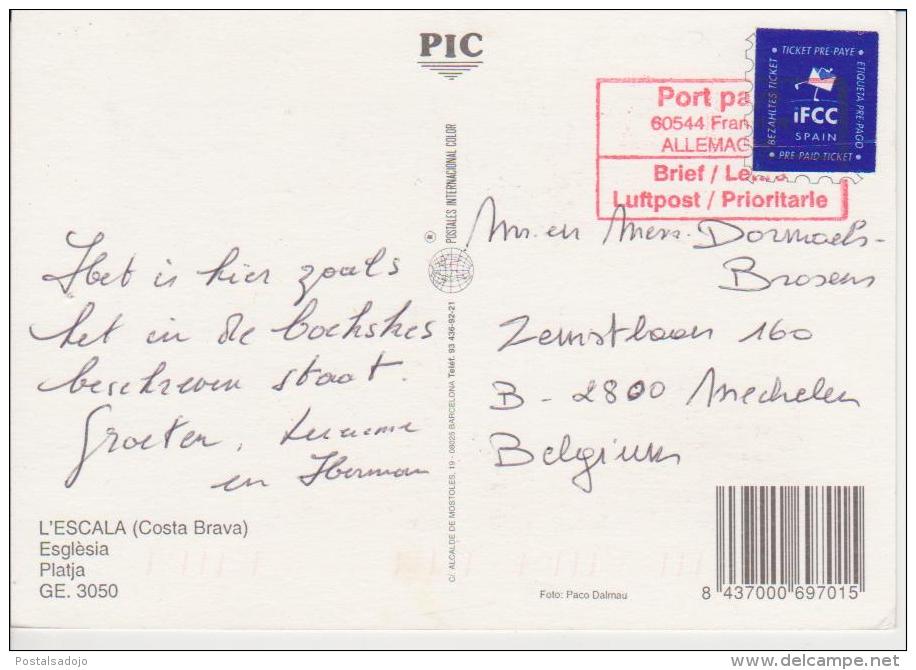 PIC
Port pa
60544 Fran
ALLEMAG
Brief / Le
Luftpost / Prioritarie
TICKET PRE-PAYE
ETIQUETA PRE-PAGO
BEZAHLTES TICKET
PRE PAID TICKET
iFCC
SPAIN
Het is hier zoals
het in de boekskes
beschreven staat.
Groeten,
en Herman
Mr. en Mevr. Dormaels-
Brosens
Zemstbaan 160
B - 2800 Mechelen
Belgium
POSTALES INTERNACIONAL COLOR
C/. ALCALDE DE MOSTOLES, 19 - 08025 BARCELONA Teléf. 93 436-92-21
L'ESCALA (Costa Brava)
Esglèsia
Platja
GE. 3050
Foto: Paco Dalmau
8 437000 697015
Postalsadojo
http://www.delcampe.net